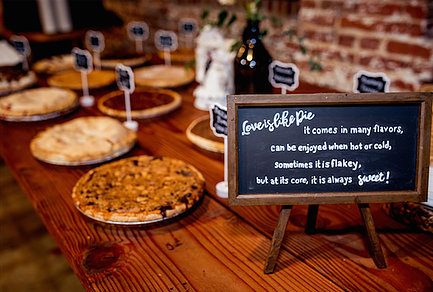 Love is like Pie
it comes in many flavors,
can be enjoyed when hot or cold,
sometimes it is flakey,
but at its core, it is always sweet!